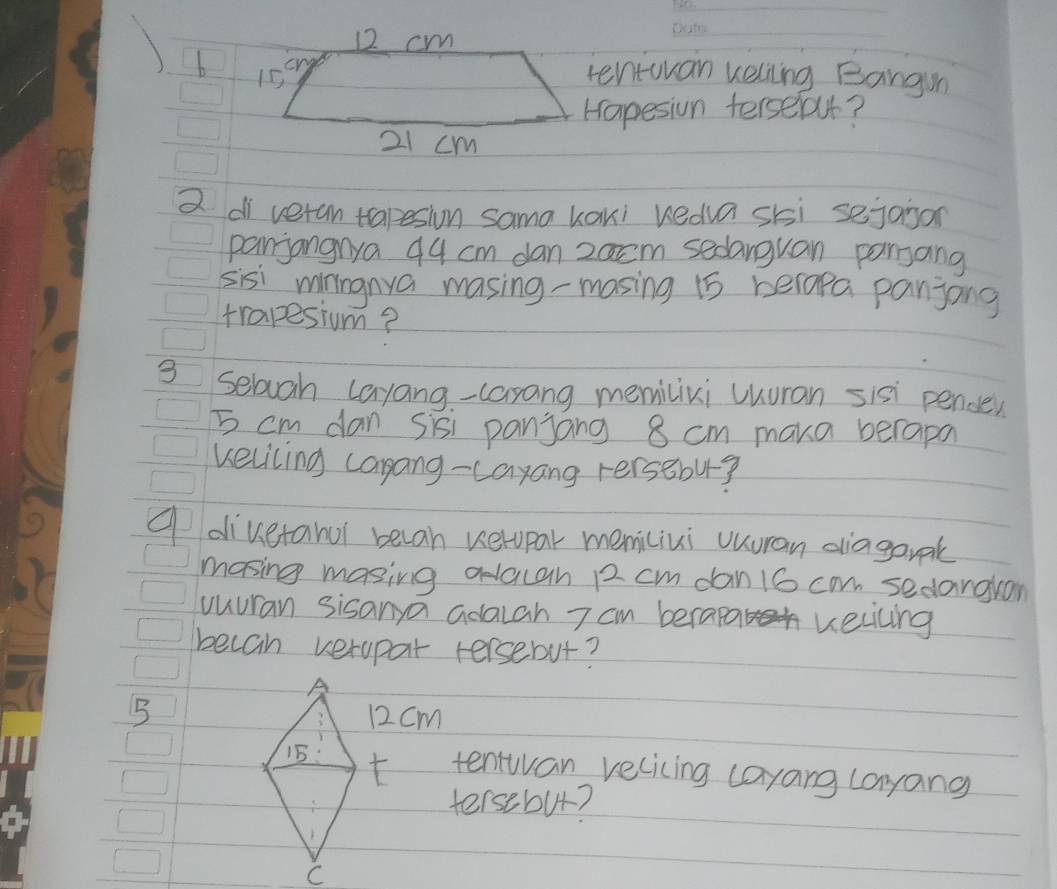 No.
Date:
12 cm
1 15 cm tentukan keliling Bangun
trapesiun tersebut?
21 cm
2 di ketan tapesiun sama kaki kedua sisi sejajar
panjangnya 44 cm dan 20 cm sedangkan panjang
sisi miringnya masing-masing 15 berapa panjang
trapesium?
3 Sebuah layang-layang memiliki ukuran sisi pendek
5 cm dan sisi panjang 8 cm maka berapa
keliling layang-layang tersebut?
4 diketahui belah ketupat memiliki ukuran
masing masing adalah 12 cm dan 16 cm sedangkan
ukuran sisanya adalah 7 cm berapa keliling
belah ketupat tersebut?
A
5 12 cm
15 t tentukan keliling layang layang
tersebut?
C